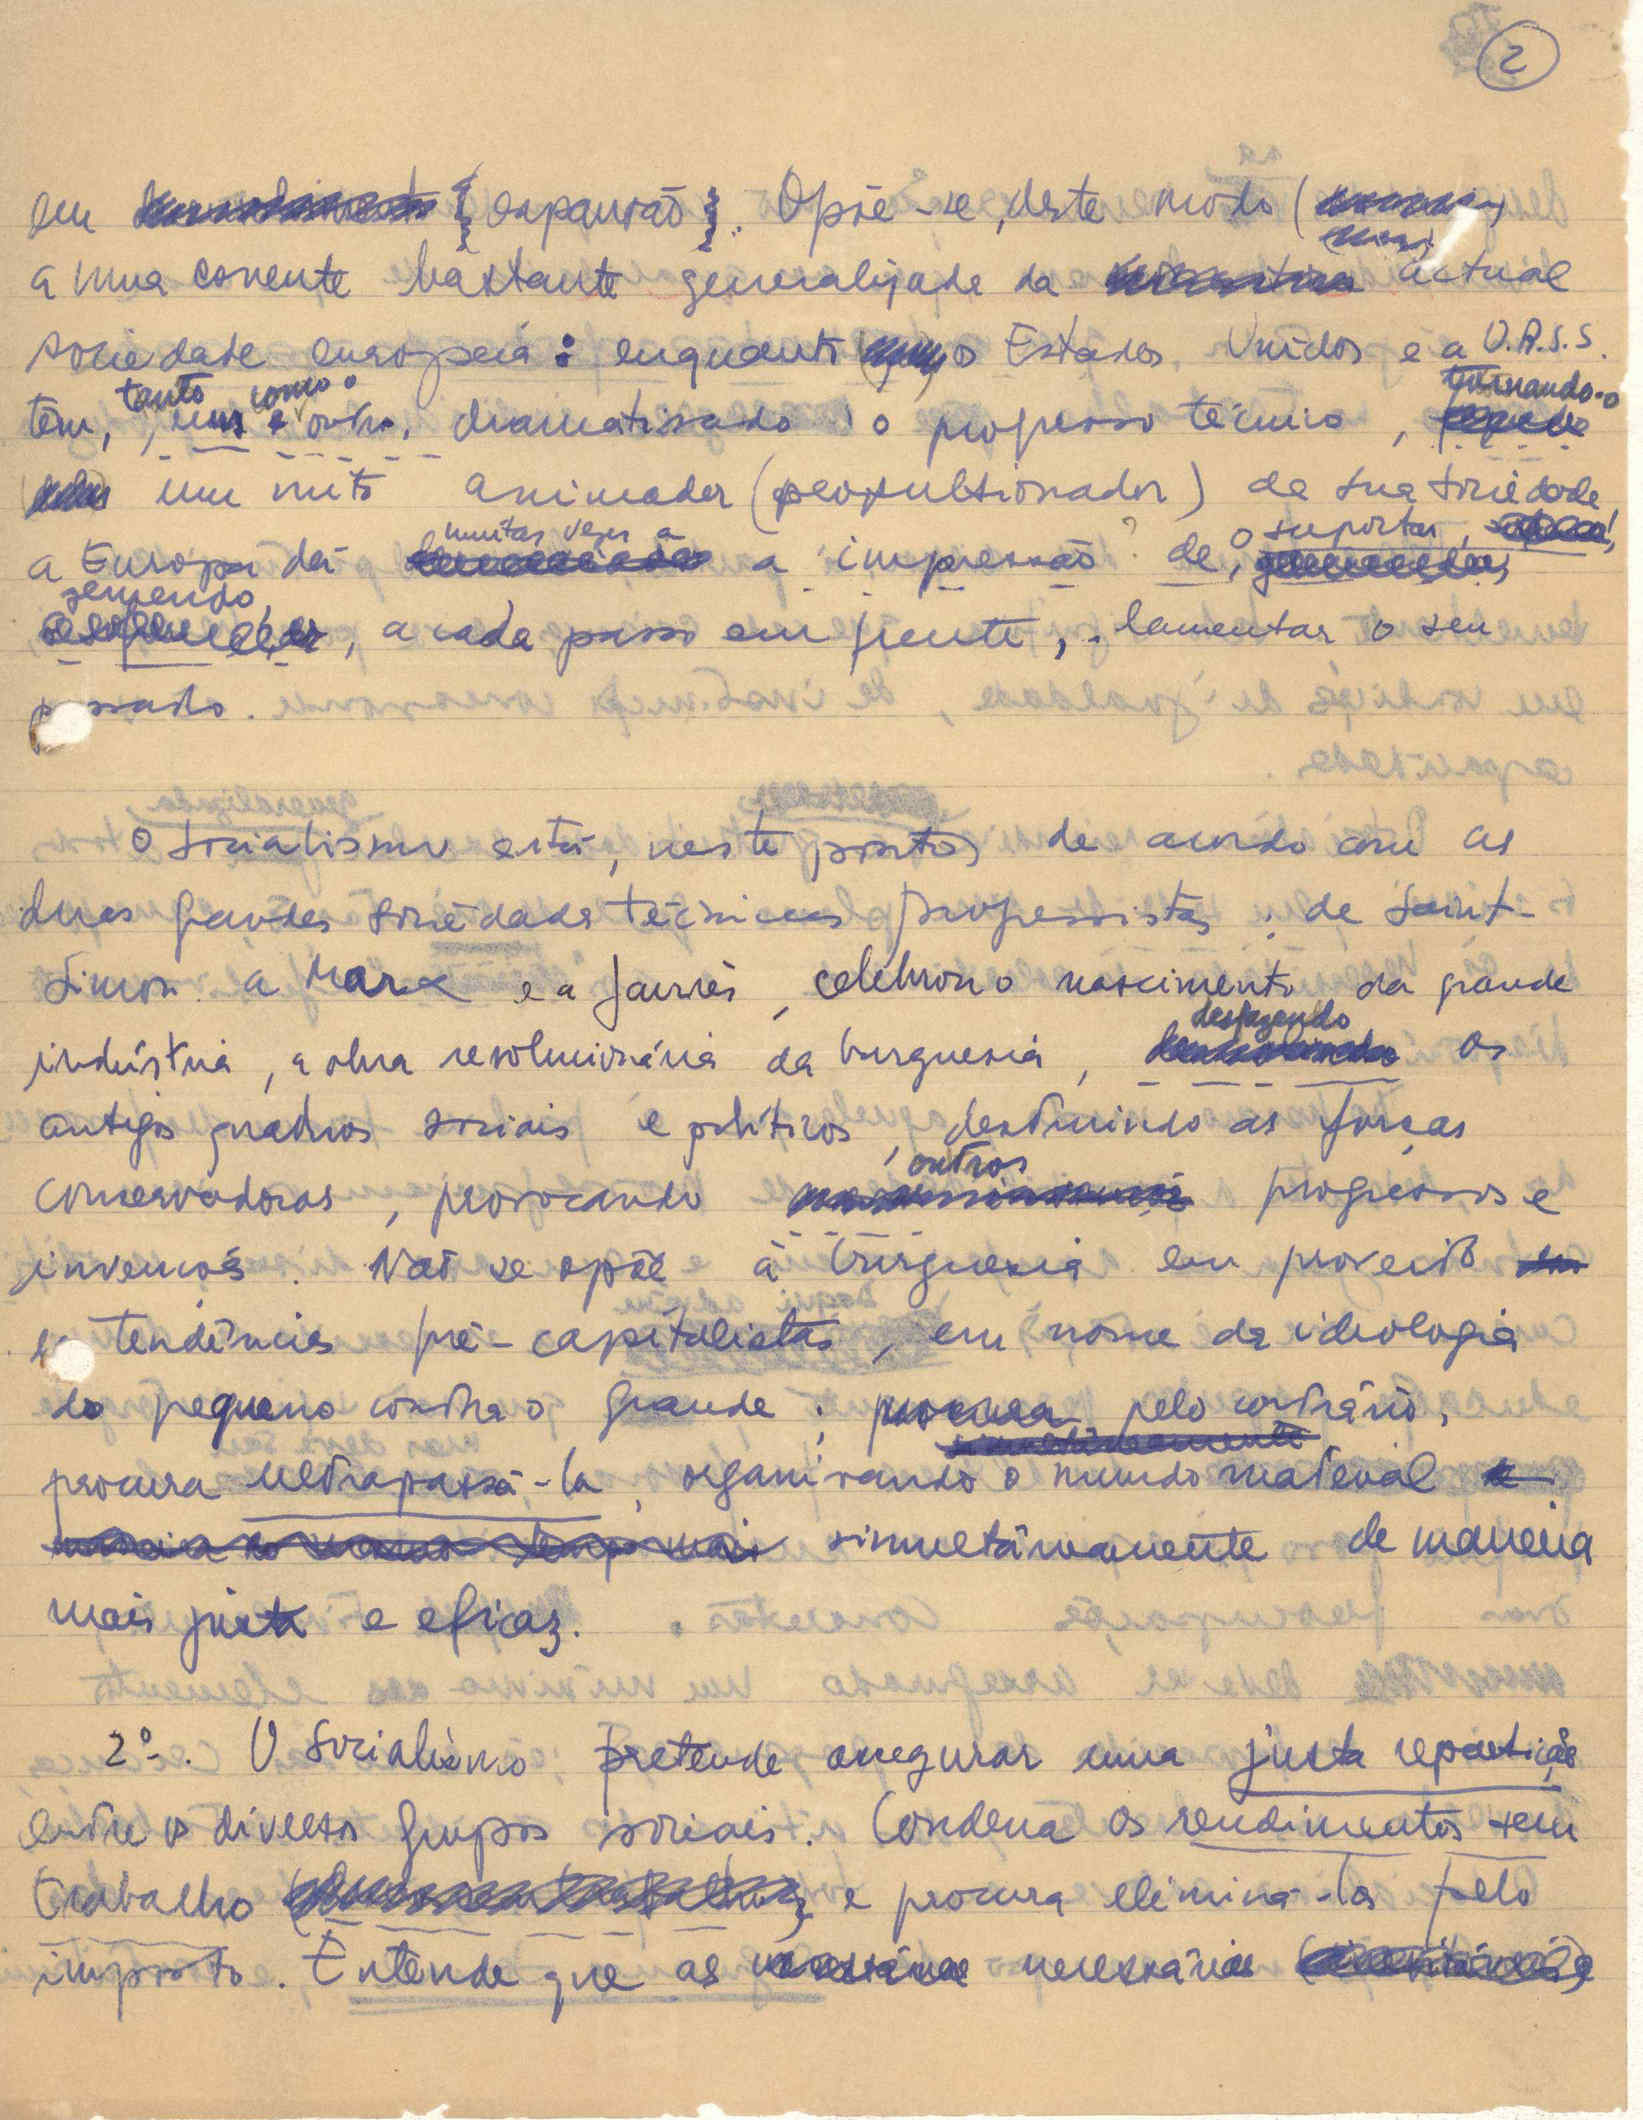 2
em {expansão}. Opõe-se, deste modo
a uma corrente bastante generalizada da actual
sociedade europeia: enquanto os Estados Unidos e a U.R.S.S.
tornando-o
tanto como o
têm, um e outro, dramatizado o progresso técnico,
um mito animador (propulsionador) da sua sociedade
muitas vezes a o suportar,
a Europa dá a impressão de,
gemendo,
, a cada passo em frente, lamentar o seu
passado.
O socialismo está, neste ponto, de acordo com as
duas grandes sociedades técnicas progressistas; de Saint-
Simon a Marx e a Jaurès, celebrou o nascimento da grande
desfazendo
indústria, a obra revolucionária da burguesia, os
antigos quadros sociais e políticos, destruindo as forças
outros
conservadoras, provocando progressos e
invenções. Não se opõe à burguesia em proveito
tendências pré-capitalistas, em nome da ideologia
do pequeno contra o grande; procura pelo contrário,
simultâneamente
procura ultrapassá-la, organizando o mundo material e
maneira ao mesmo tempo mais simultâneamente de maneira
mais justa e eficaz.
2º-. O Socialismo pretende assegurar uma justa repartição
entre os diversos grupos sociais. Condena os rendimentos sem
trabalho e procura eliminá-los pelo
imposto. Entende que as necessárias